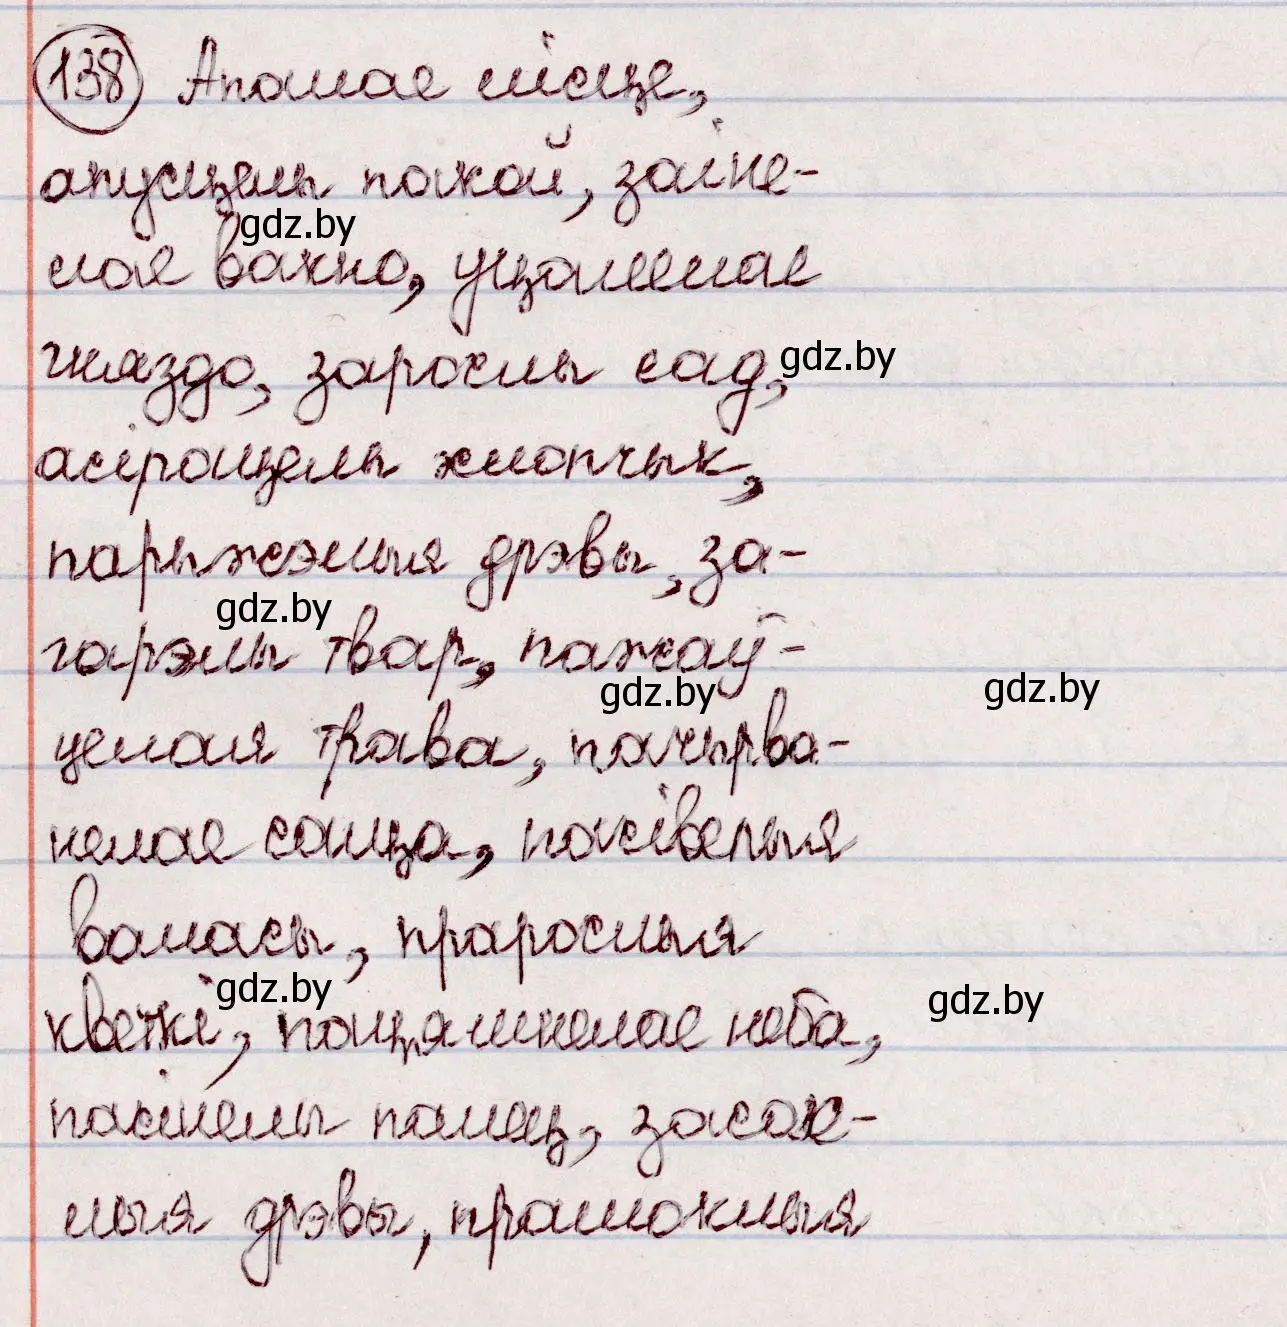 138 Апалае лісце,
апусцелы пакой, заіне-
лае вакно, уцалелае
гняздо, зарослы сад,
асірацелы хлопчык,
парыжэлыя дрэвы, за-
гарэлы твар, пажаў-
целая трава, пачырва-
нелае сонца, пасівелыя
валасы, прарослыя
кветкі, пацямнелае неба,
пасінелы палец, засох-
лыя дрэвы, прамоклыя
gdz.by
gdz.by
gdz.by
gdz.by
gdz.by
gdz.by
gdz.by